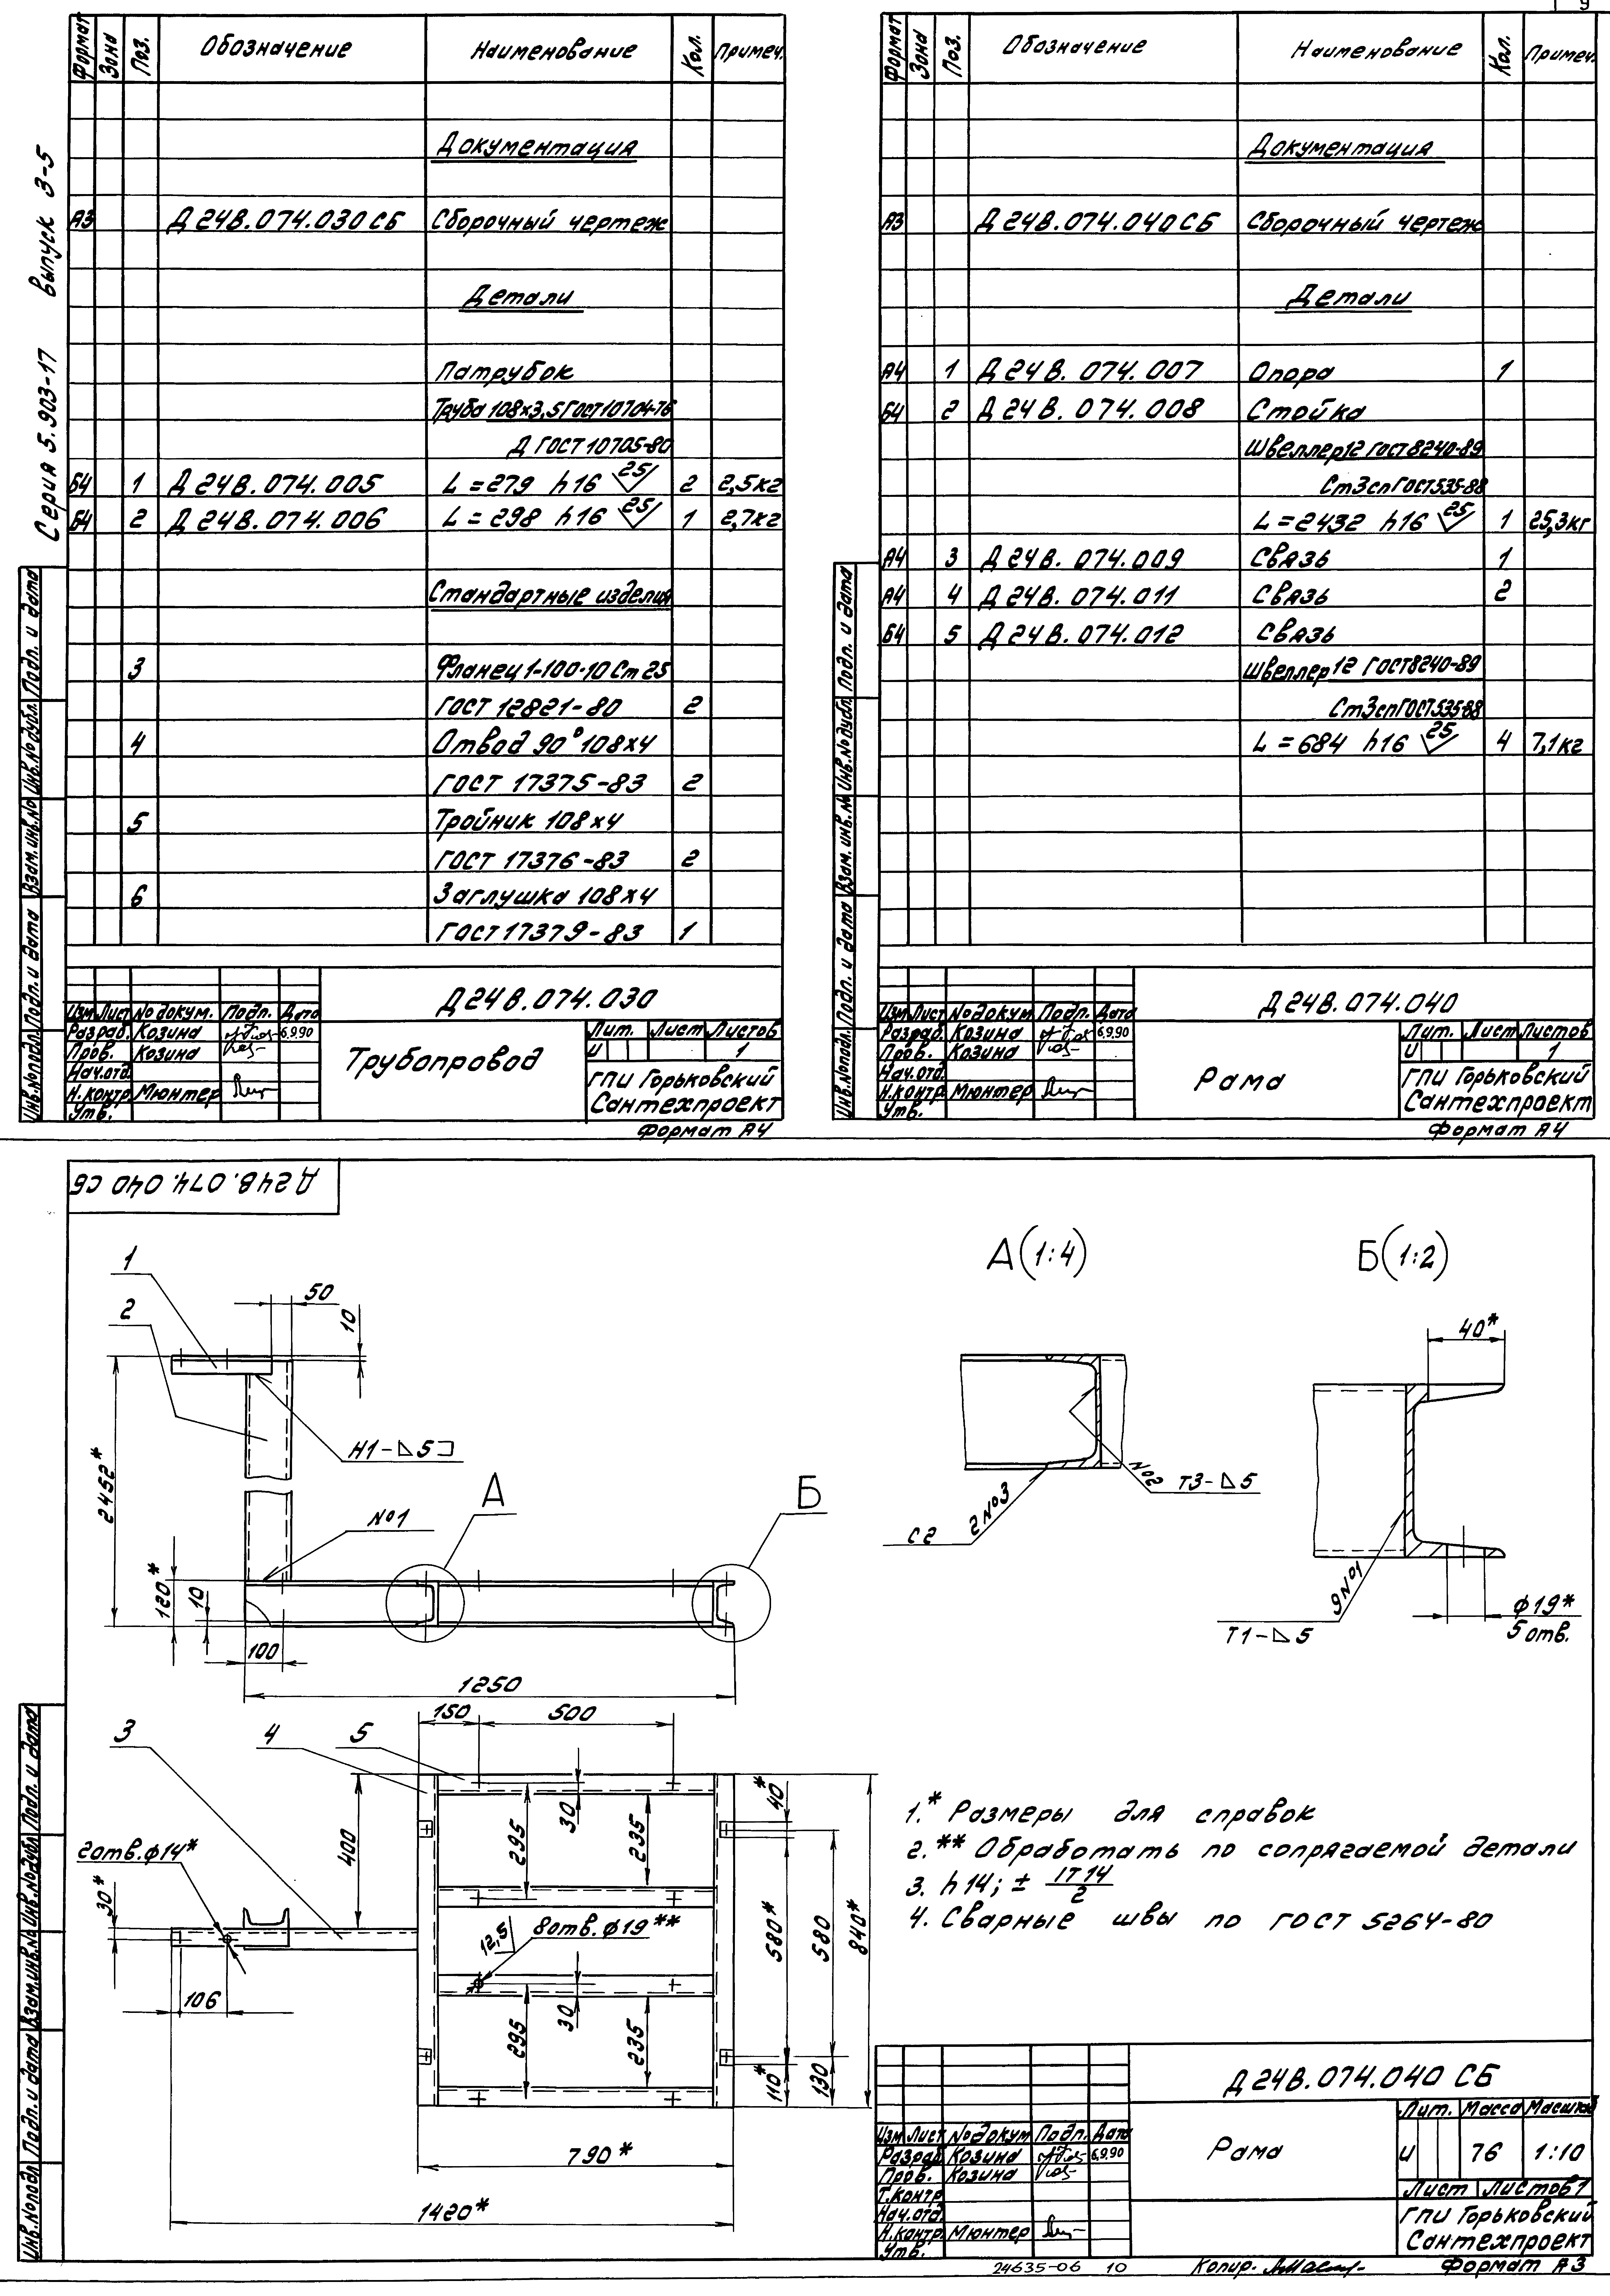 Серия 5.903-17 выпуск 3-5
Формат Зона Поз. Обозначение Наименование Кол. Примеч.
Документация
А3 Д24В.074.030СБ Сборочный чертеж
Детали
Патрубок
Труба 108×3,5 ГОСТ 10704-76
Д ГОСТ 10705-80
Б4 1 Д24В.074.005 L=279 h16 25 2 2,5кг
Б4 2 Д24В.074.006 L=298 h16 25 1 2,7кг
Стандартные изделия
3 Фланец 1-100-10 Ст 25
ГОСТ 12821-80 2
4 Отвод 90° 108×4
ГОСТ 17375-83 2
5 Тройник 108×4
ГОСТ 17376-83 2
6 Заглушка 108×4
ГОСТ 17379-83 1
Инв.№подл. Подп. и дата Взам.инв.№ Инв.№дубл. Подп. и дата
Д24В.074.030
Изм Лист №докум. Подп. Дата
Разраб. Козина 6.9.90
Пров. Козина
Нач.отд.
Н.контр. Мюнтер
Утв.
Трубопровод
Лит. Лист Листов
И 1
ГПИ Горьковский
Сантехпроект
Формат А4
9
Формат Зона Поз. Обозначение Наименование Кол. Примеч.
Документация
А3 Д24В.074.040СБ Сборочный чертеж
Детали
А4 1 Д24В.074.007 Опора 1
Б4 2 Д24В.074.008 Стойка
Швеллер 12 ГОСТ 8240-89
Ст3сп ГОСТ 535-88
L=2432 h16 25 1 25,3кг
А4 3 Д24В.074.009 Связь 1
А4 4 Д24В.074.011 Связь 2
Б4 5 Д24В.074.012 Связь
Швеллер 12 ГОСТ 8240-89
Ст3сп ГОСТ 535-88
L=684 h16 25 4 7,1кг
Инв.№подл. Подп. и дата Взам.инв.№ Инв.№дубл. Подп. и дата
Д24В.074.040
Изм Лист №докум. Подп. Дата
Разраб. Козина 6.9.90
Пров. Козина
Нач.отд.
Н.контр. Мюнтер
Утв.
Рама
Лит. Лист Листов
И 1
ГПИ Горьковский
Сантехпроект
Формат А4
Д24В.074.040 СБ
1
2
50
10
2452*
Н1-⊿5⊐
№1
А
Б
120*
10
100
1250
А(1:4)
№2 Т3-⊿5
С2 2№3
Б(1:2)
40*
9№1
Т1-⊿5
φ19*
5 отв.
3
4
5
150
500
400
295
30
235
40*
2отв.φ14*
30*
106
12,5
8отв.φ19**
580*
580
840*
295
30
235
110*
130
790*
1420*
1.* Размеры для справок
2.** Обработать по сопрягаемой детали
3. h14; ± IT14/2
4. Сварные швы по ГОСТ 5264-80
Инв.№подл. Подп. и дата Взам.инв.№ Инв.№дубл. Подп. и дата
Д24В.074.040 СБ
Изм Лист №докум. Подп. Дата
Разраб. Козина 6.9.90
Пров. Козина
Т.контр.
Нач.отд.
Н.контр. Мюнтер
Утв.
Рама
Лит. Масса Масштаб
И 76 1:10
Лист Листов 1
ГПИ Горьковский
Сантехпроект
24635-06 10 Копир. Формат А3